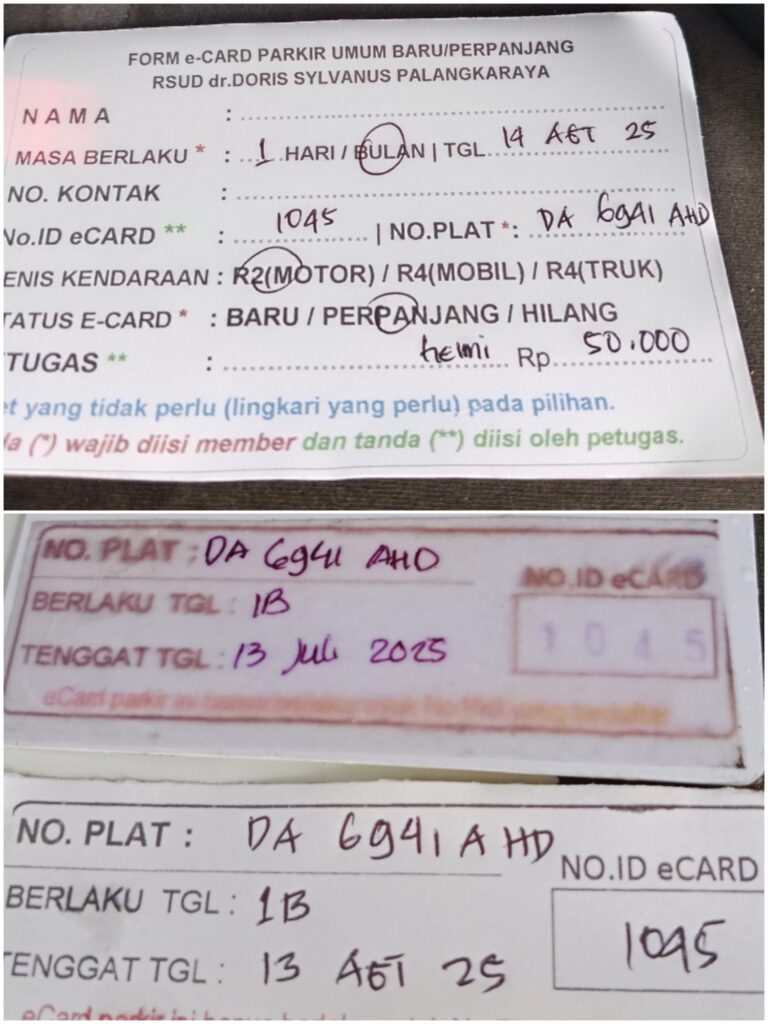 FORM e-CARD PARKIR UMUM BARU/PERPANJANG
RSUD dr.DORIS SYLVANUS PALANGKARAYA
N A M A :
MASA BERLAKU * : 1 HARI / BULAN | TGL 14 AGT 25
NO. KONTAK :
No.ID eCARD ** : 1045 | NO.PLAT *: DA 6941 AHD
ENIS KENDARAAN : R2(MOTOR) / R4(MOBIL) / R4(TRUK)
TATUS E-CARD * : BARU / PERPANJANG / HILANG
TUGAS ** : helmi Rp 50.000
et yang tidak perlu (lingkari yang perlu) pada pilihan.
da (*) wajib diisi member dan tanda (**) diisi oleh petugas.
NO. PLAT : DA 6941 AHD
NO.ID eCARD
BERLAKU TGL : 1B
1045
TENGGAT TGL : 13 Juli 2025
eCard parkir ini hanya
NO. PLAT : DA 6941 AHD
NO.ID eCARD
BERLAKU TGL : 1B
1045
TENGGAT TGL : 13 AGT 25
eCard parkir ini